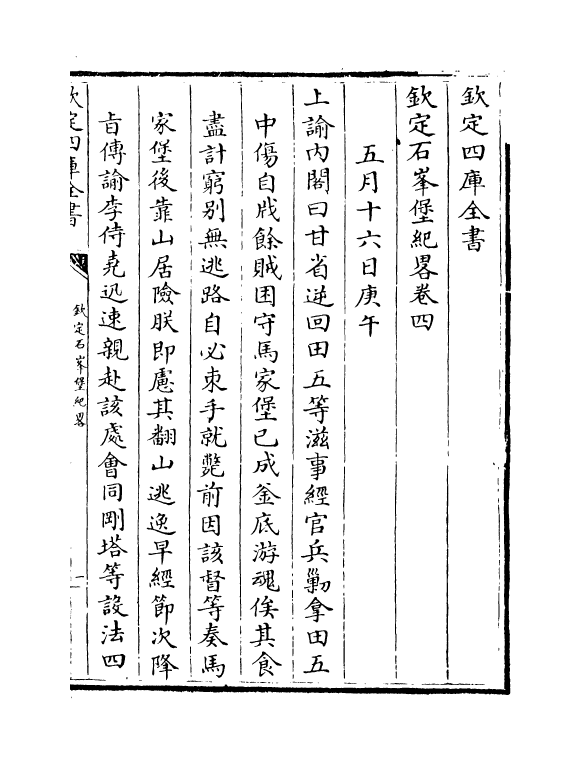 欽定四庫全書
欽定石峯堡紀畧卷四
五月十六日庚午
上諭内閣曰甘省逆回田五等滋事經官兵勦拿田五
中傷自戕餘賊困守馬家堡已成釜底游魂俟其食
盡計窮别無逃路自必束手就斃前因該督等奏馬
家堡後靠山居險朕即慮其翻山逃逸早經節次降
㫖傳諭李侍堯迅速親赴該處會同剛塔等設法四
欽定四庫全書
欽定石峯堡紀畧
一